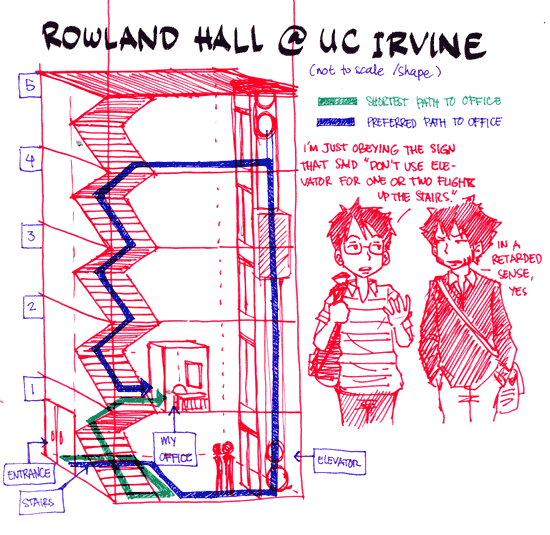 ROWLAND HALL @ UC IRVINE
(not to scale / shape)
SHORTEST PATH TO OFFICE
PREFERRED PATH TO OFFICE
I'M JUST OBEYING THE SIGN
THAT SAID "DON'T USE ELE-
VATOR FOR ONE OR TWO FLIGHTS
UP THE STAIRS."
IN A
RETARDED
SENSE,
YES
5
4
3
2
1
MY
OFFICE
ENTRANCE
STAIRS
ELEVATOR